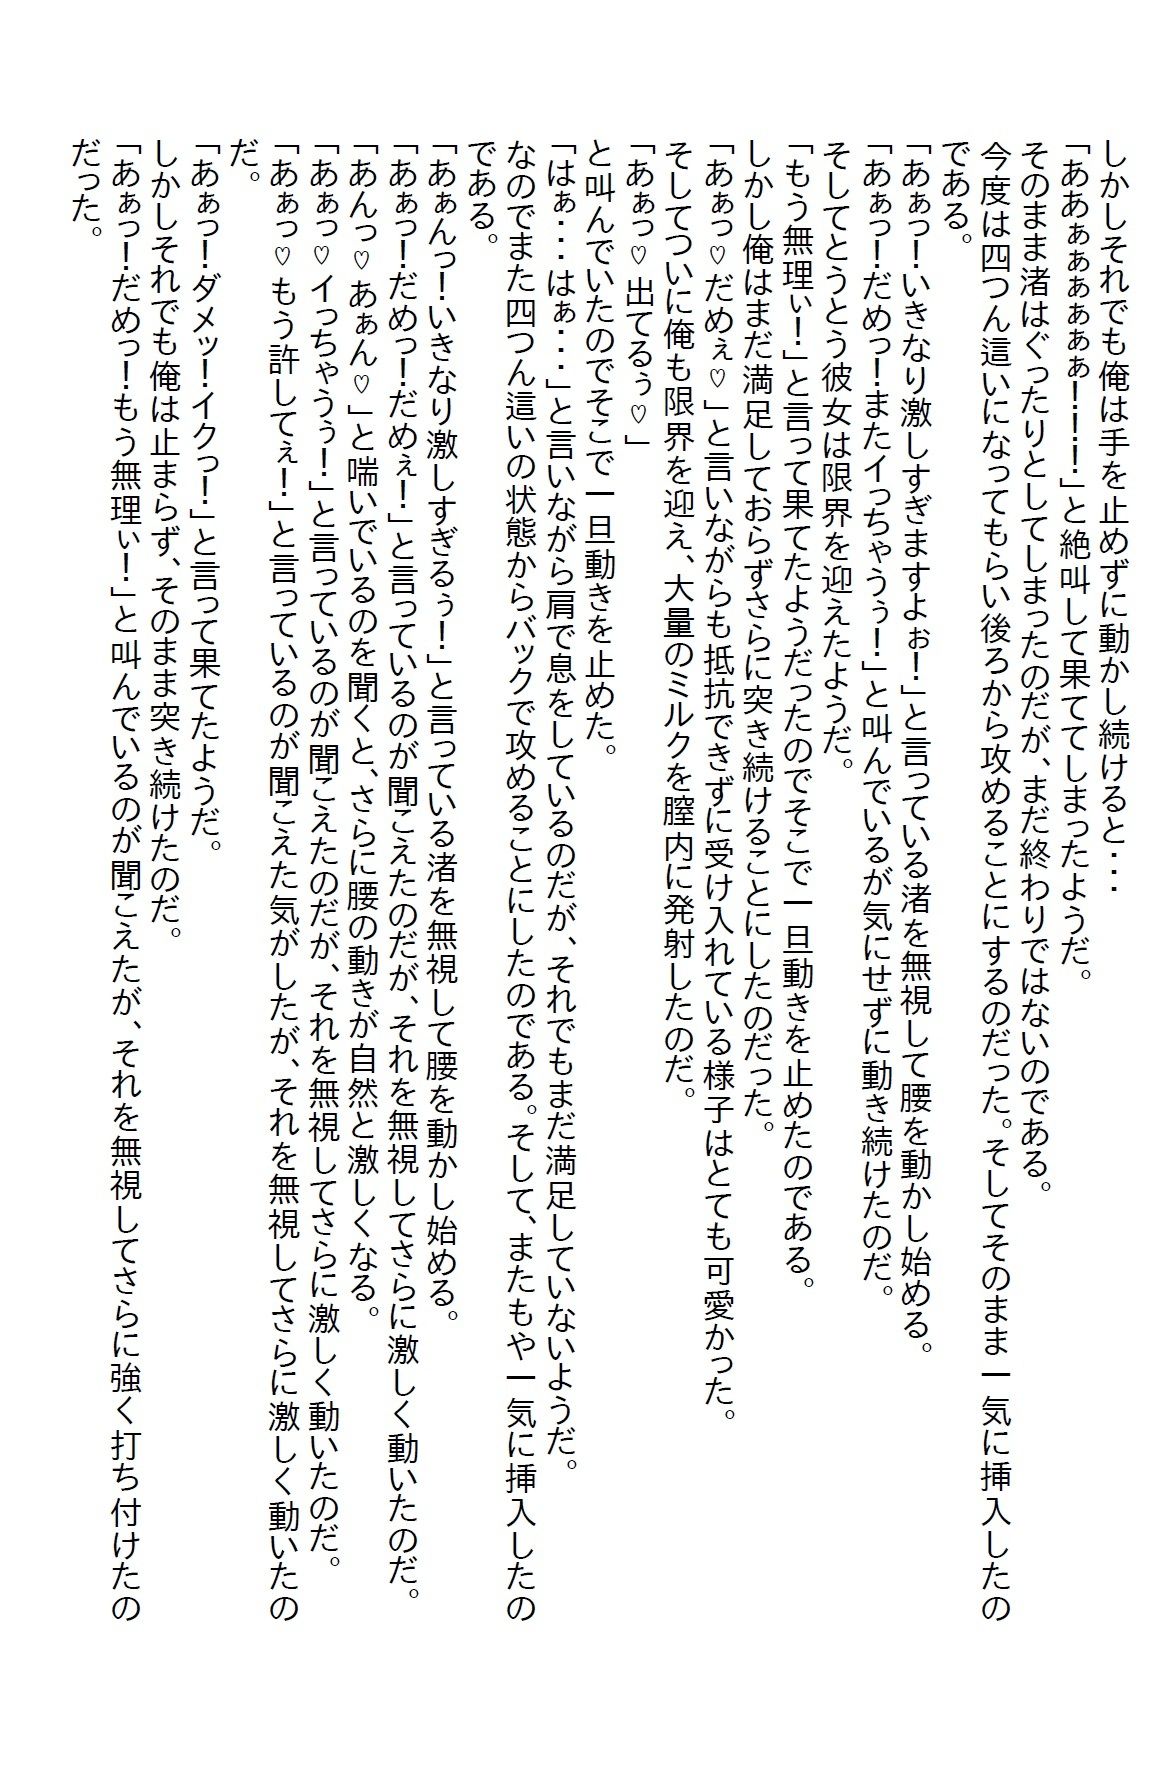 しかしそれでも俺は手を止めずに動かし続けると・・・
「ああぁぁぁぁぁぁ！！！」と絶叫して果ててしまったようだ。
そのまま渚はぐったりとしてしまったのだが、まだ終わりではないのである。
今度は四つん這いになってもらい後ろから攻めることにするのだった。そしてそのまま一気に挿入したの
である。
「あぁっ！いきなり激しすぎますよぉ！」と言っている渚を無視して腰を動かし始める。
「あぁっ！だめっ！またイっちゃうぅ！」と叫んでいるが気にせずに動き続けたのだ。
そしてとうとう彼女は限界を迎えたようだ。
「もう無理ぃ！」と言って果てたようだったのでそこで一旦動きを止めたのである。
しかし俺はまだ満足しておらずさらに突き続けることにしたのだった。
「あぁっ♡だめぇ♡」と言いながらも抵抗できずに受け入れている様子はとても可愛かった。
そしてついに俺も限界を迎え、大量のミルクを膣内に発射したのだ。
「あぁっ♡出てるぅ♡」
と叫んでいたのでそこで一旦動きを止めた。
「はぁ・・・はぁ・・・」と言いながら肩で息をしているのだが、それでもまだ満足していないようだ。
なのでまた四つん這いの状態からバックで攻めることにしたのである。そして、またもや一気に挿入したの
である。
「あぁんっ！いきなり激しすぎるぅ！」と言っている渚を無視して腰を動かし始める。
「あぁっ！だめっ！だめぇ！」と言っているのが聞こえたのだが、それを無視してさらに激しく動いたのだ。
「あんっ♡あぁん♡」と喘いでいるのを聞くと、さらに腰の動きが自然と激しくなる。
「あぁっ♡イっちゃうぅ！」と言っているのが聞こえたのだが、それを無視してさらに激しく動いたのだ。
「あぁっ♡もう許してぇ！」と言っているのが聞こえた気がしたが、それを無視してさらに激しく動いたの
だ。
「あぁっ！ダメッ！イクっ！」と言って果てたようだ。
しかしそれでも俺は止まらず、そのまま突き続けたのだ。
「あぁっ！だめっ！もう無理ぃ！」と叫んでいるのが聞こえたが、それを無視してさらに強く打ち付けたの
だった。